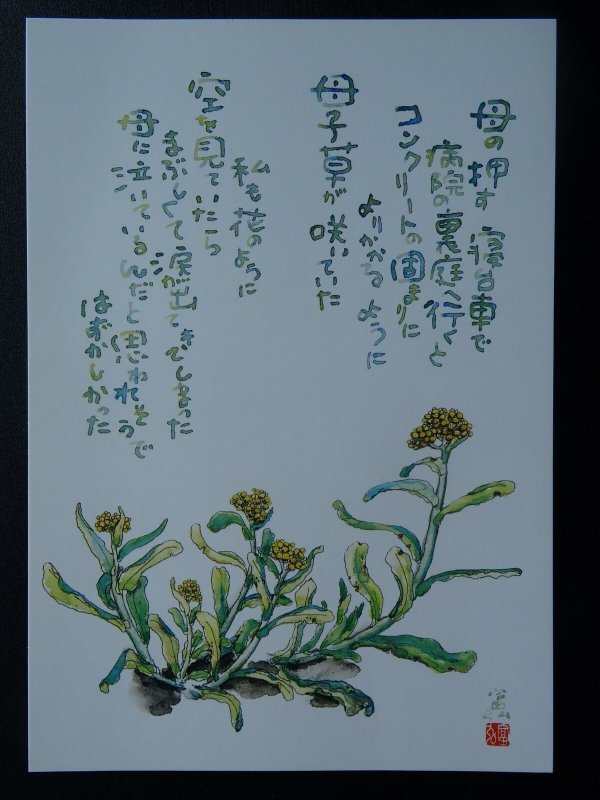 母の押す 寝台車で
病院の裏庭へ行くと
コンクリートの固まりに
よりかかるように
母子草が咲いていた
私も花のように
空を見ていたら
まぶしくて涙が出てきてしまった
母に泣いているんだと思われそうで
はずかしかった
富弘